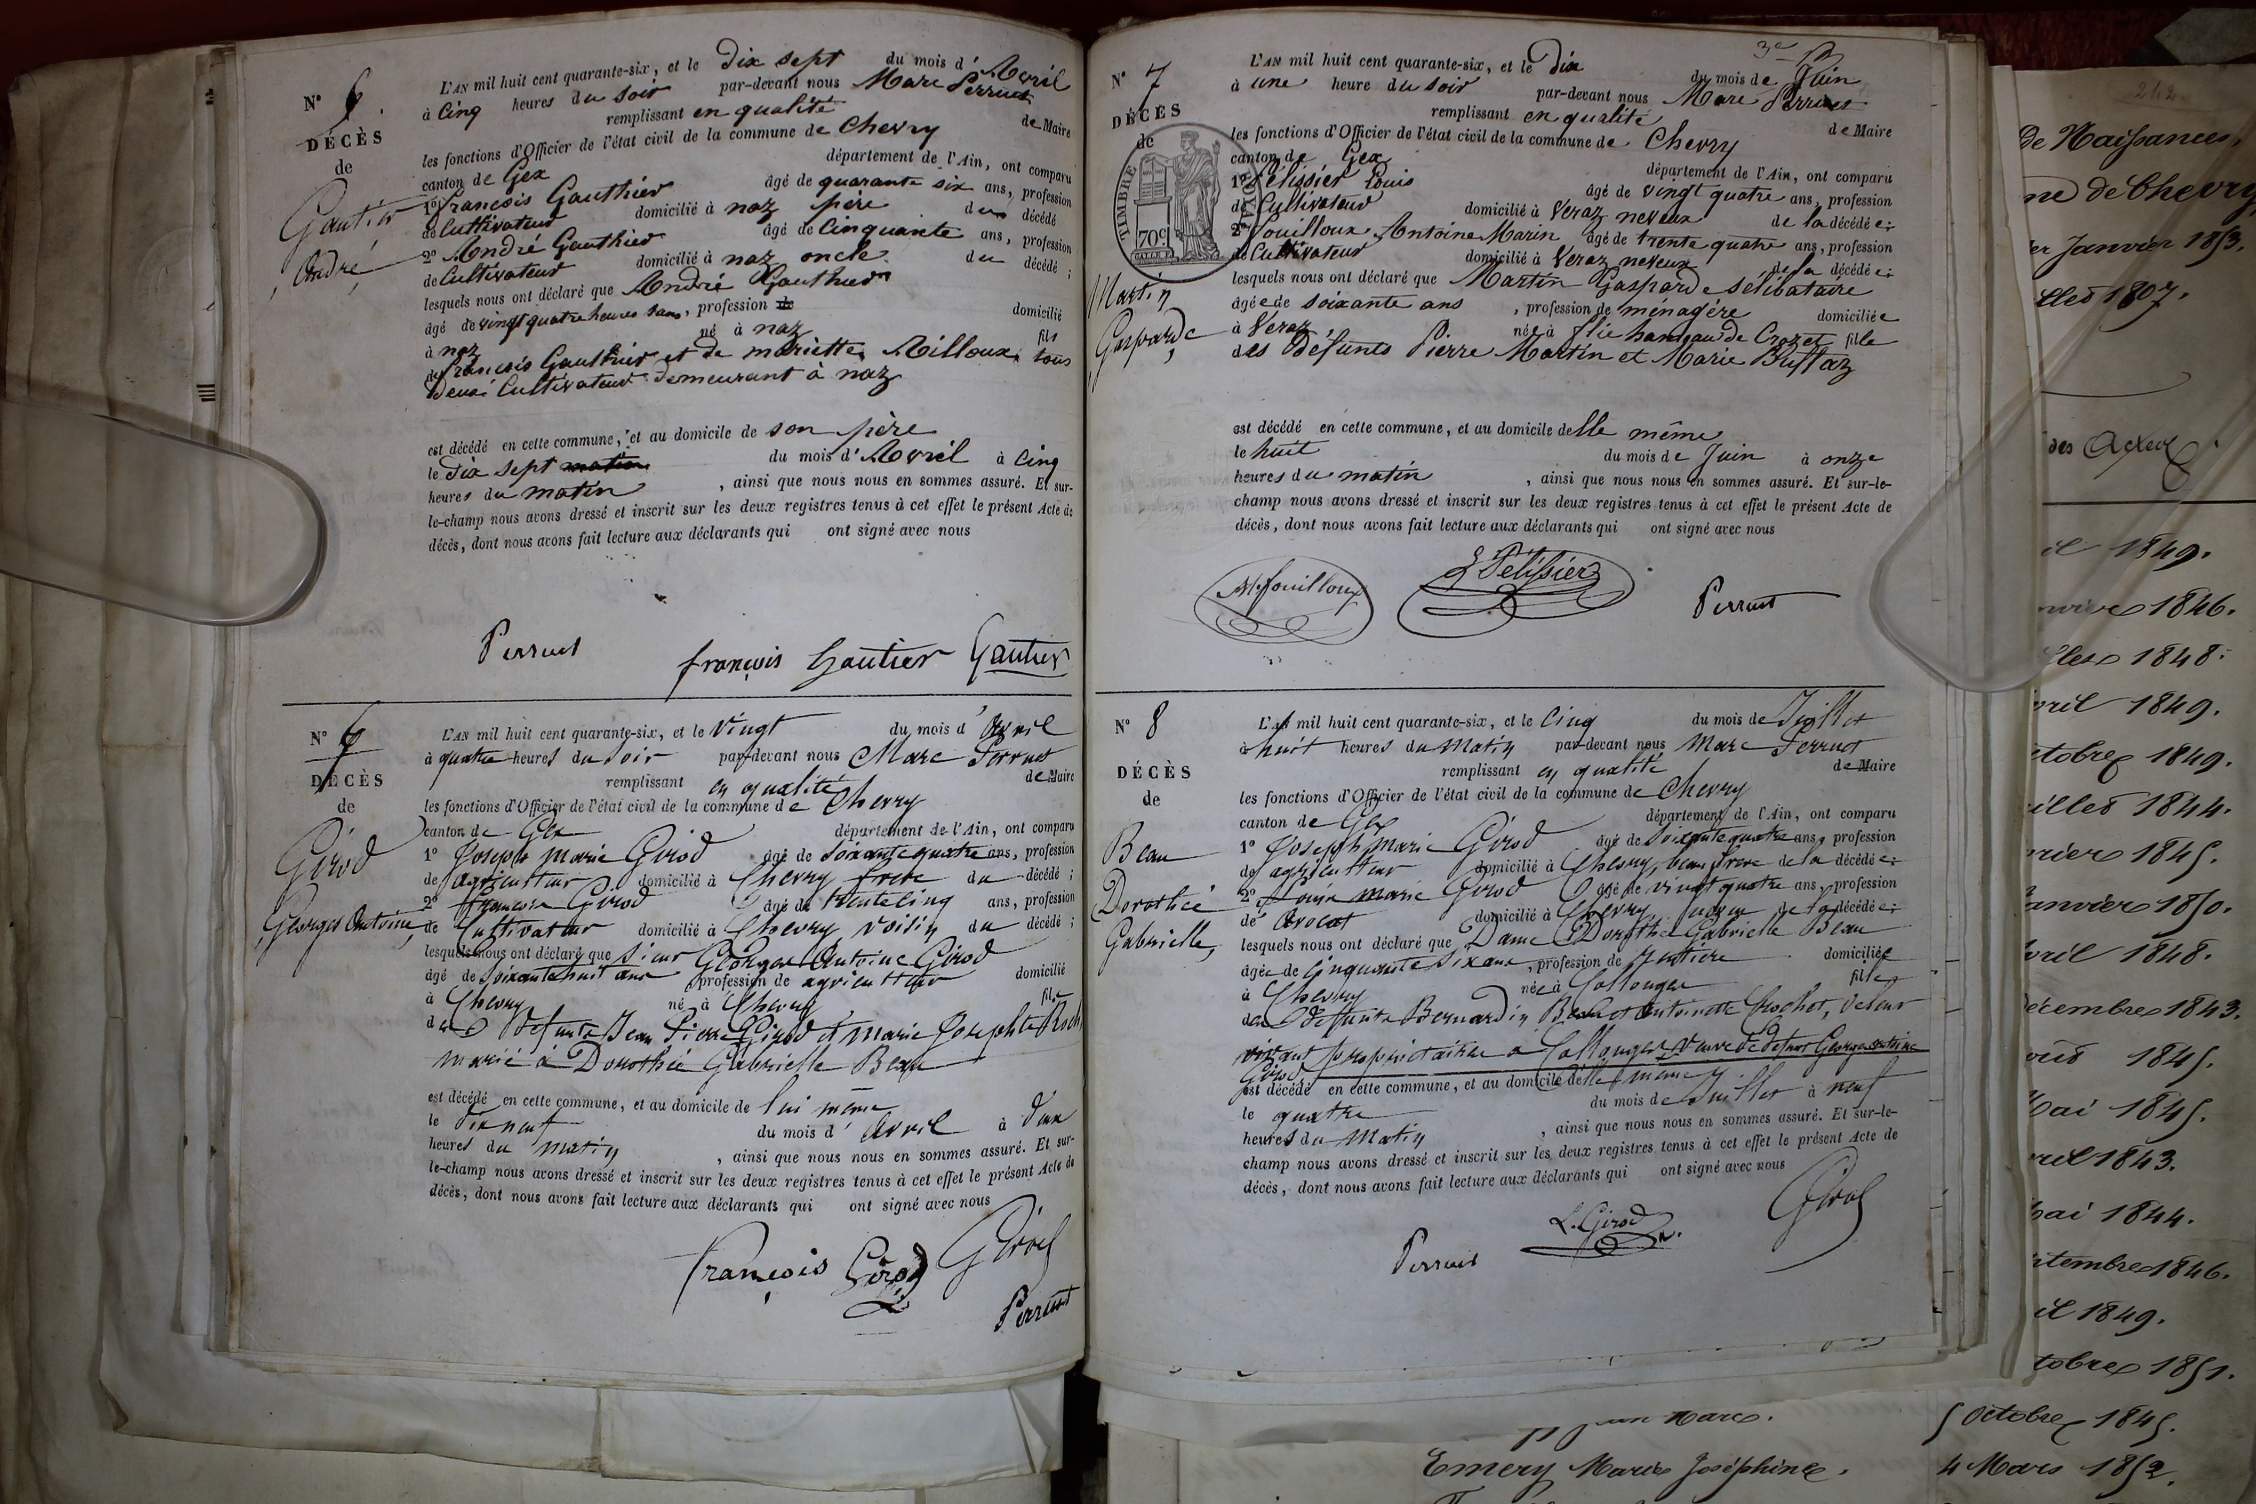 N° 6.
DÉCÈS
de
Gautier
André
L'AN mil huit cent quarante-six, et le Dix sept du mois d'Avril
à Cinq heures du soir par-devant nous Marc Perruet
remplissant en qualité de Maire
les fonctions d'Officier de l'état civil de la commune de Chevry
canton de Gex département de l'Ain, ont comparu
1° François Gauthier âgé de quarante six ans, profession
de Cultivateur domicilié à naz père du décédé
2° André Gauthier âgé de Cinquante ans, profession
de Cultivateur domicilié à naz oncle du décédé ;
lesquels nous ont déclaré que André Gauthier
âgé de vingt quatre heures sans, profession de domicilié
à naz né à naz fils
de François Gauthier et de mariette Milloux tous
Deux Cultivateur demeurant à naz
est décédé en cette commune, et au domicile de son père
le Dix sept matin du mois d'Avril à Cinq
heures du matin, ainsi que nous nous en sommes assuré. Et sur-
le-champ nous avons dressé et inscrit sur les deux registres tenus à cet effet le présent Acte de
décès, dont nous avons fait lecture aux déclarants qui ont signé avec nous
Perruet françois Gautier Gautier
N° 6
DÉCÈS
de
Girod
Georges Antoine
L'AN mil huit cent quarante-six, et le vingt du mois d'Avril
à quatre heures du soir par-devant nous Marc Perruet
remplissant en qualité de Maire
les fonctions d'Officier de l'état civil de la commune de Chevry
canton de Gex département de l'Ain, ont comparu
1° Joseph Marie Girod âgé de soixante quatre ans, profession
de agriculteur domicilié à Chevry frère du décédé ;
2° François Girod âgé de trente cinq ans, profession
de Cultivateur domicilié à Chevry voisin du décédé ;
lesquels nous ont déclaré que sieur Georges Antoine Girod
âgé de soixante huit ans profession de agriculteur domicilié
à Chevry né à Chevry fils
des Defunts Jean Pierre Girod et marie Josephte Roch
marié à Dorothée Gabrielle Beau
est décédé en cette commune, et au domicile de lui même
le Dix neuf du mois d'Avril à deux
heures du matin, ainsi que nous nous en sommes assuré. Et sur-
le-champ nous avons dressé et inscrit sur les deux registres tenus à cet effet le présent Acte de
décès, dont nous avons fait lecture aux déclarants qui ont signé avec nous
François Girod Girod
Perruet
3e
N° 7
DÉCÈS
de
TIMBRE ROYAL
70c
Martin
Gasparde
L'AN mil huit cent quarante-six, et le Dix du mois de Juin
à une heure du soir par-devant nous Marc Perruet
remplissant en qualité de Maire
les fonctions d'Officier de l'état civil de la commune de Chevry
canton de Gex département de l'Ain, ont comparu
1° Pélissier Louis âgé de vingt quatre ans, profession
de Cultivateur domicilié à Veraz neveux de la décédée ;
2° Fouilloux Antoine Marin âgé de trente quatre ans, profession
de Cultivateur domicilié à Veraz neveux de la décédée ;
lesquels nous ont déclaré que Martin Gasparde sélibataire
âgée de soixante ans, profession de ménagère domiciliée
à Veraz née à flie hameau de Crozet fille
des Défunts Pierre Martin et Marie Buffaz
est décédé en cette commune, et au domicile delle même
le huit du mois de Juin à onze
heures du matin, ainsi que nous nous en sommes assuré. Et sur-le-
champ nous avons dressé et inscrit sur les deux registres tenus à cet effet le présent Acte de
décès, dont nous avons fait lecture aux déclarants qui ont signé avec nous
fouilloux L Pélissier Perruet
N° 8
DÉCÈS
de
Beau
Dorothée
Gabrielle
L'AN mil huit cent quarante-six, et le Cinq du mois de Juillet
à huit heures du matin par-devant nous Marc Perruet
remplissant en qualité de Maire
les fonctions d'Officier de l'état civil de la commune de Chevry
canton de Gex département de l'Ain, ont comparu
1° Joseph Marie Girod âgé de soixante quatre ans, profession
de agriculteur domicilié à Chevry, beau frere de la décédée ;
2° Louis marie Girod âgé de vingt quatre ans, profession
de Avocat domicilié à Chevry de la décédée ;
lesquels nous ont déclaré que Dame Dorothée Gabrielle Beau
âgée de Cinquante six ans, profession de rentière domiciliée
à Chevry née à Collonges fille
des défunts Bernardin Beau et Antoinette Crochet, de leur
vivant propriétaires a Collonges veuve de defunt Georges antoine
Girod
est décédé en cette commune, et au domicile delle même
le quatre du mois de Juillet à neuf
heures du Matin, ainsi que nous nous en sommes assuré. Et sur-le-
champ nous avons dressé et inscrit sur les deux registres tenus à cet effet le présent Acte de
décès, dont nous avons fait lecture aux déclarants qui ont signé avec nous
Perruet L. Girod Girod
242
de Naissances,
ne de Chevry
er Janvier 1853.
1807.
des Actes
1849.
1846.
1848.
1849.
ctobre 1849.
1844.
1845.
anvier 1850.
1848.
écembre 1843.
1845.
Mai 1845.
1843.
Mai 1844.
ptembre 1846.
1849.
tobre 1851.
Marc. 5 Octobre 1845.
Emery Marie Joséphine. 4 Mars 1852.